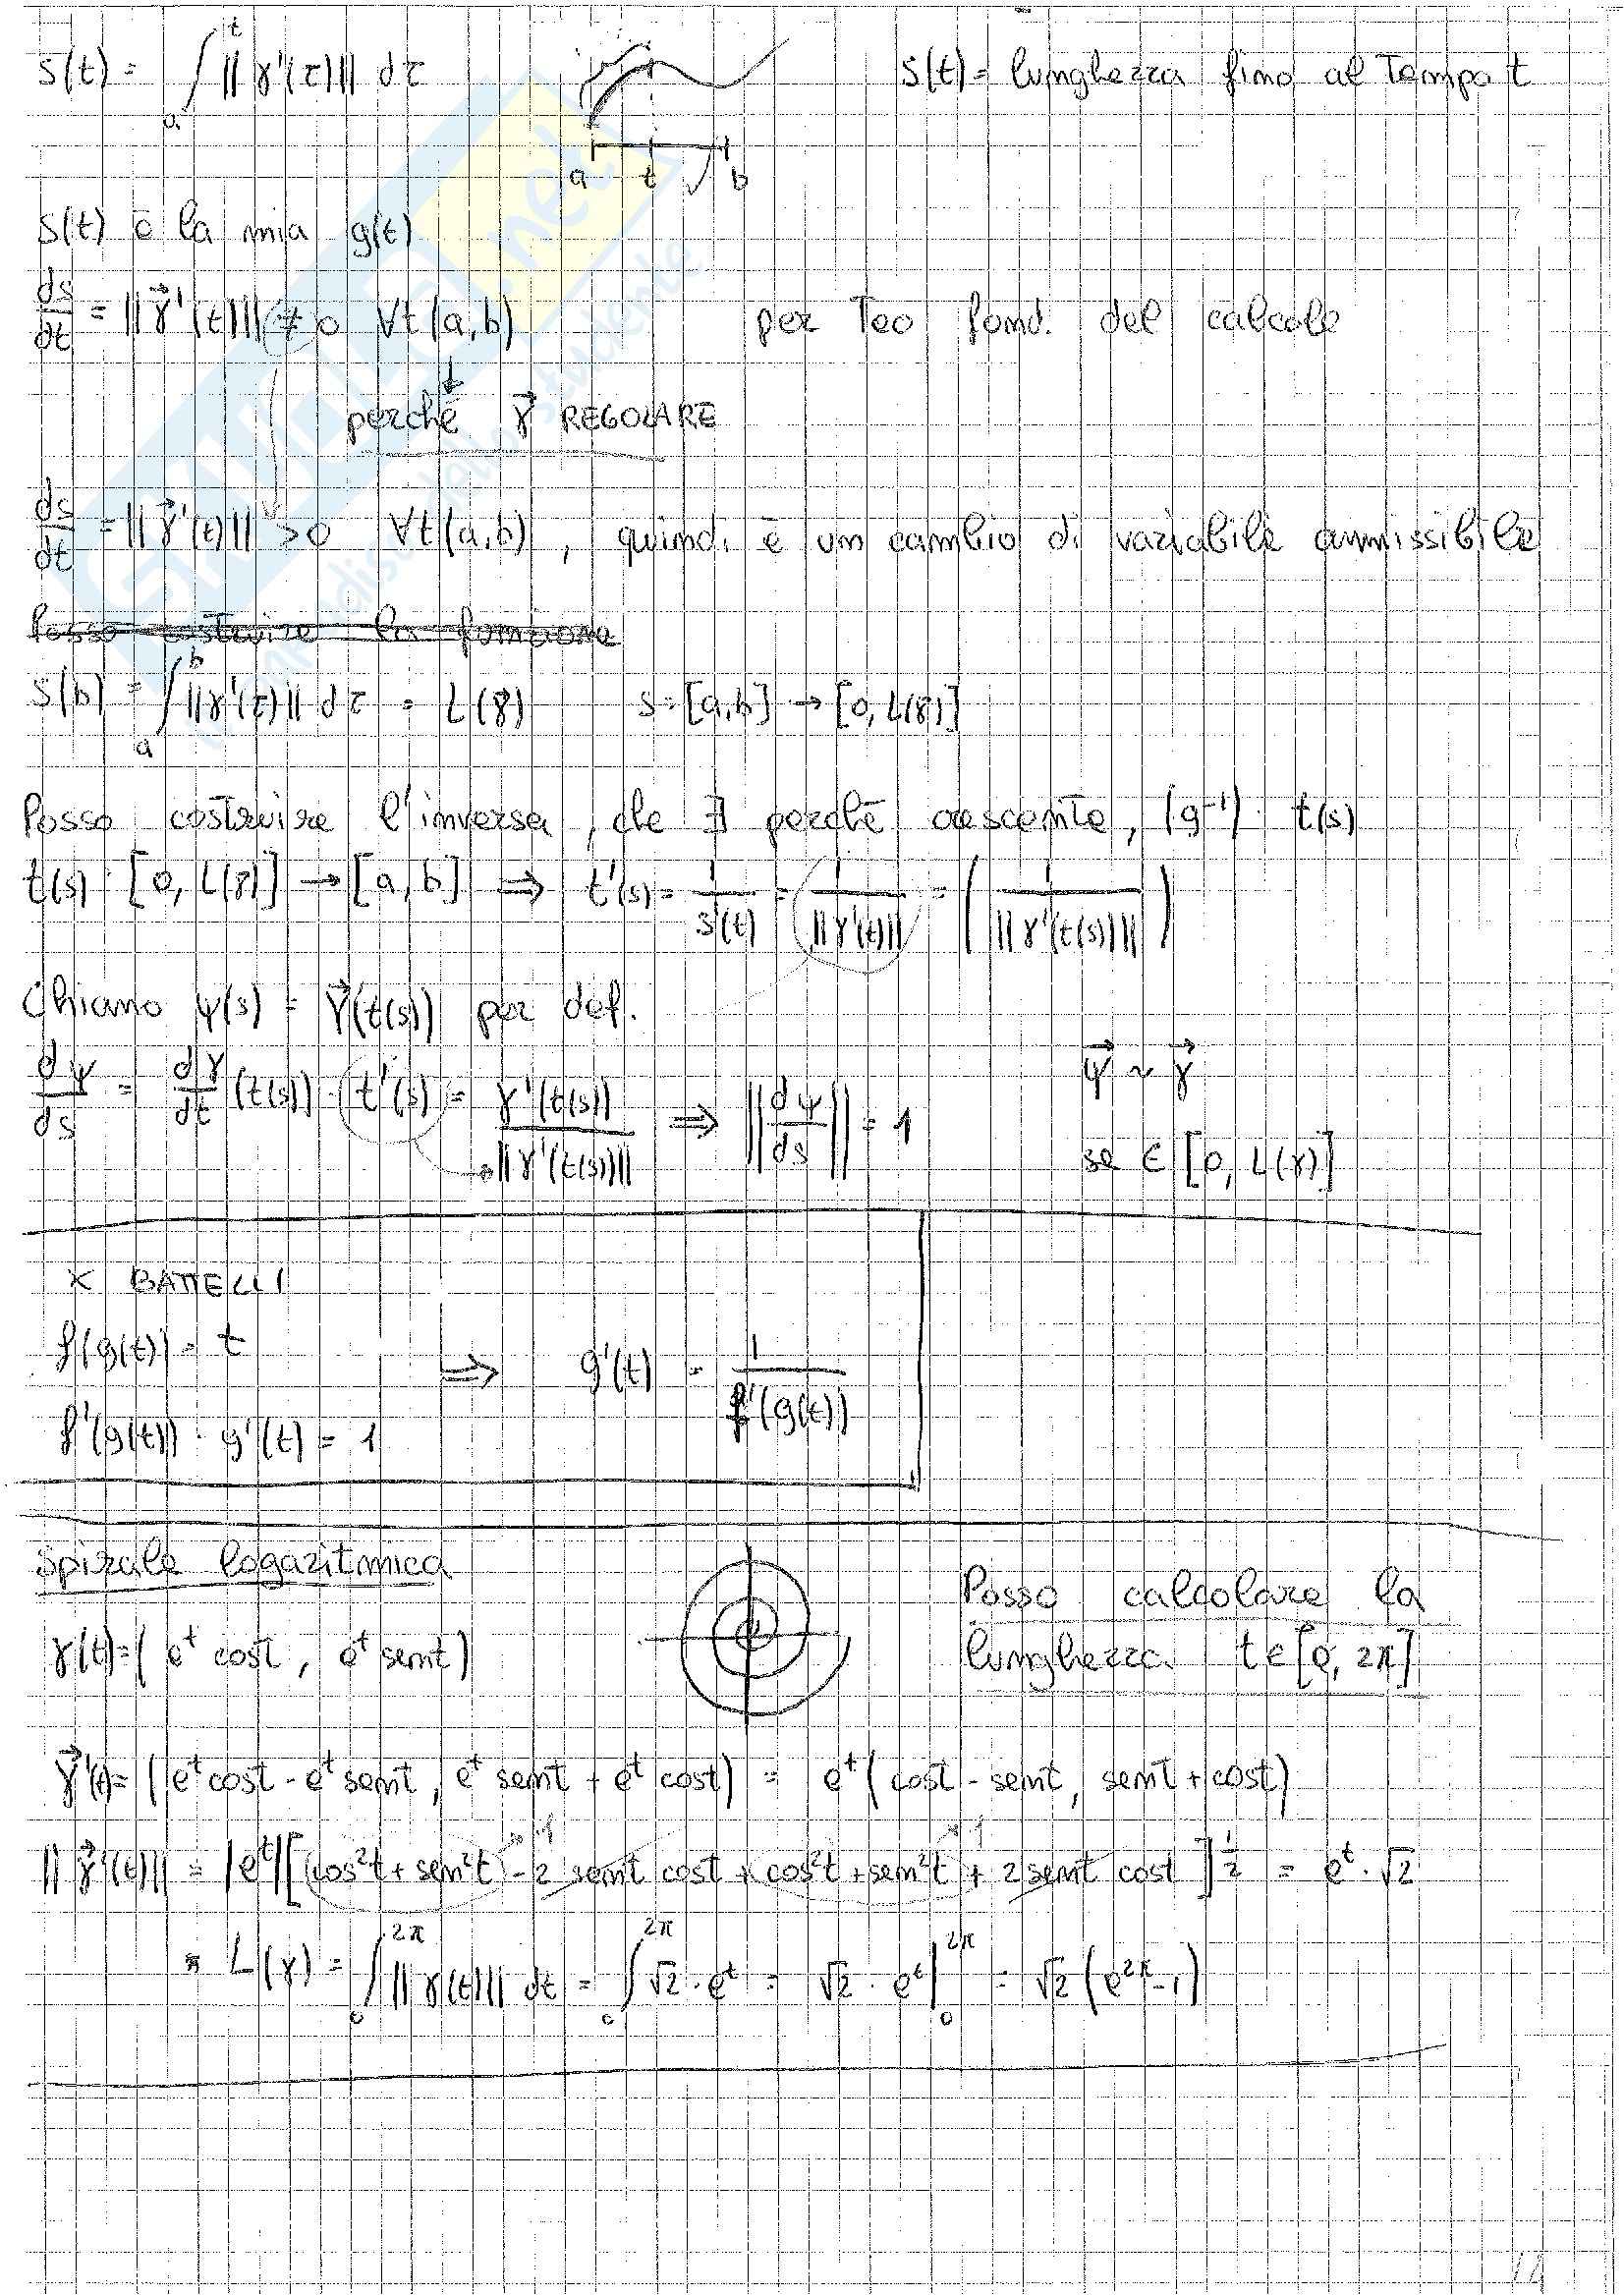 s(t) = ∫ₐᵗ ||γ'(τ)|| dτ   s(t) = lunghezza fino al tempo t
a   t   b
s(t) è la mia g(t)
ds/dt = ||γ⃗'(t)|| ≠ 0   ∀t(a,b)   per Teo fond. del calcolo
perché γ⃗ REGOLARE
ds/dt = ||γ⃗'(t)|| > 0   ∀t(a,b), quindi è un cambio di variabile ammissibile
Posso costruire la funzione
s(b) = ∫ₐᵇ ||γ'(τ)|| dτ = L(γ)   s:[a,b] → [0, L(γ)]
Posso costruire l'inversa, che ∃ perché crescente, (g⁻¹) t(s)
t(s) [0, L(γ)] → [a,b] ⇒ t'(s) = 1/s'(t) = 1/||γ'(t)|| = (1/||γ'(t(s))||)
Chiamo ψ(s) = γ⃗(t(s)) per def.
dψ/ds = dγ/dt (t(s)) · t'(s) = γ'(t(s))/||γ'(t(s))|| ⇒ ||dψ/ds|| = 1   ψ⃗ ~ γ⃗
se ∈ [0, L(γ)]
× BATTELLI
f(g(t)) = t
⇒ g'(t) = 1/f'(g(t))
f'(g(t)) · g'(t) = 1
Spirale logaritmica   Posso calcolare la
γ(t) = (eᵗ cost, eᵗ sent)   lunghezza   t∈[0, 2π]
γ⃗'(t) = (eᵗ cost - eᵗ sent, eᵗ sent + eᵗ cost) = eᵗ (cost - sent, sent + cost)
||γ⃗'(t)|| = |eᵗ| [(cos²t + sen²t) - 2 sent cost + cos²t + sen²t + 2 sent cost]^½ = eᵗ · √2
L(γ) = ∫₀^2π ||γ(t)|| dt = ∫₀^2π √2 · eᵗ = √2 · eᵗ |₀^2π = √2 (e^2π - 1)